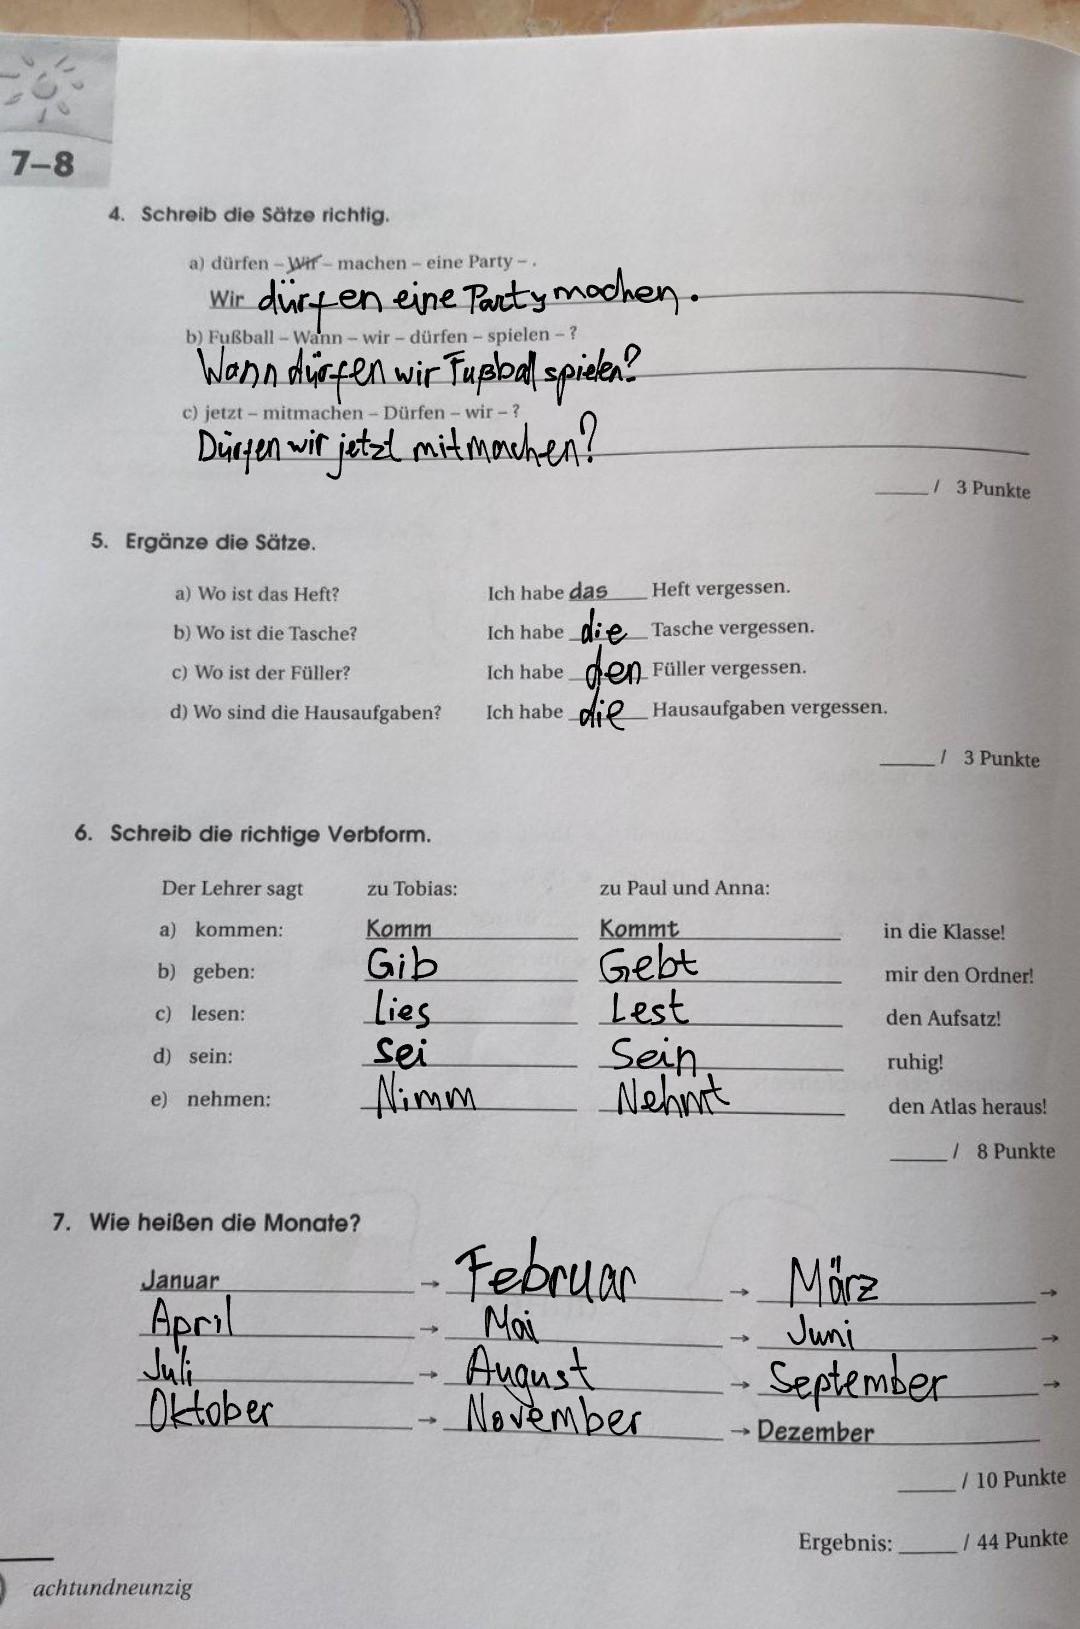 7–8
4. Schreib die Sätze richtig.
a) dürfen – Wir – machen – eine Party – .
Wir dürfen eine Party machen.
b) Fußball – Wann – wir – dürfen – spielen – ?
Wann dürfen wir Fußball spielen?
c) jetzt – mitmachen – Dürfen – wir – ?
Dürfen wir jetzt mitmachen?
____ / 3 Punkte
5. Ergänze die Sätze.
a) Wo ist das Heft? Ich habe das Heft vergessen.
b) Wo ist die Tasche? Ich habe die Tasche vergessen.
c) Wo ist der Füller? Ich habe den Füller vergessen.
d) Wo sind die Hausaufgaben? Ich habe die Hausaufgaben vergessen.
____ / 3 Punkte
6. Schreib die richtige Verbform.
Der Lehrer sagt zu Tobias: zu Paul und Anna:
a) kommen: Komm Kommt in die Klasse!
b) geben: Gib Gebt mir den Ordner!
c) lesen: Lies Lest den Aufsatz!
d) sein: Sei Sein ruhig!
e) nehmen: Nimm Nehmt den Atlas heraus!
____ / 8 Punkte
7. Wie heißen die Monate?
Januar → Februar → März →
April → Mai → Juni →
Juli → August → September →
Oktober → November → Dezember
____ / 10 Punkte
Ergebnis: ____ / 44 Punkte
achtundneunzig